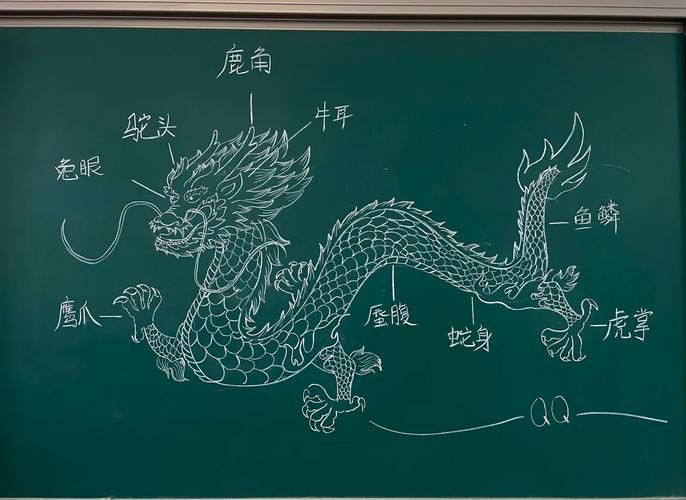 鹿角
牛耳
驼头
兔眼
鱼鳞
鹰爪
蜃腹
虎掌
蛇身
QQ